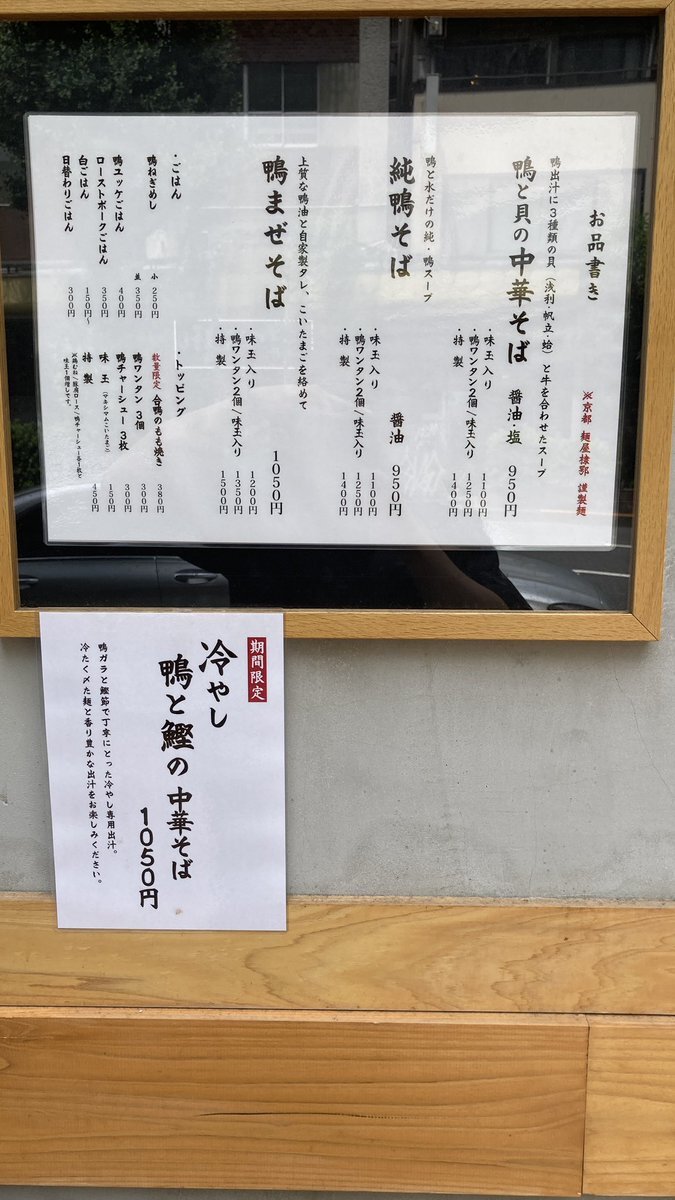 お品書き
※京都 麺屋棣鄂 謹製麺
鴨出汁に3種類の貝（浅利・帆立・蛤）と牛を合わせたスープ
鴨と貝の中華そば 醤油・塩 950円
・味玉入り 1100円
・鴨ワンタン2個/味玉入り 1250円
・特製 1400円
鴨と水だけの純・鴨スープ
純鴨そば 醤油 950円
・味玉入り 1100円
・鴨ワンタン2個/味玉入り 1250円
・特製 1400円
上質な鴨油と自家製タレ、こいたまごを絡めて
鴨まぜそば 1050円
・味玉入り 1200円
・鴨ワンタン2個/味玉入り 1350円
・特製 1500円
・ごはん
鴨ねぎめし 小 250円
並 350円
鴨ユッケごはん 400円
ローストポークごはん 350円
白ごはん 150円〜
日替わりごはん 300円
・トッピング
数量限定 合鴨のもも焼き 380円
鴨ワンタン 3個 300円
鴨チャーシュー 3枚 300円
味玉（マキシマムこいたまご） 150円
特製 450円
※鶏むね/豚肩ロース/鴨チャーシュー各1枚と
味玉1個増しです。
期間限定
冷やし
鴨と鰹の中華そば
1050円
鴨ガラと鰹節で丁寧にとった冷やし専用出汁。
冷たく〆た麺と香り豊かな出汁をお楽しみください。